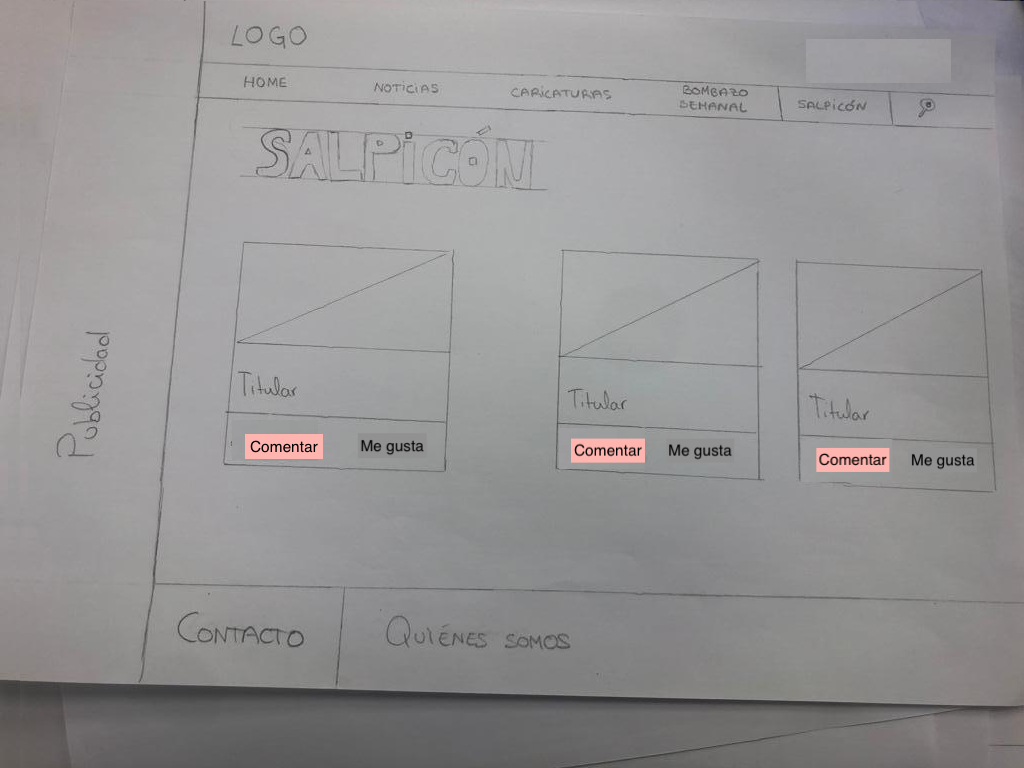 LOGO
HOME
NOTICIAS
CARICATURAS
BOMBAZO
SEMANAL
SALPICÓN
SALPICÓN
Publicidad
Titular
Comentar Me gusta
Titular
Comentar Me gusta
Titular
Comentar Me gusta
CONTACTO
QUIÉNES SOMOS